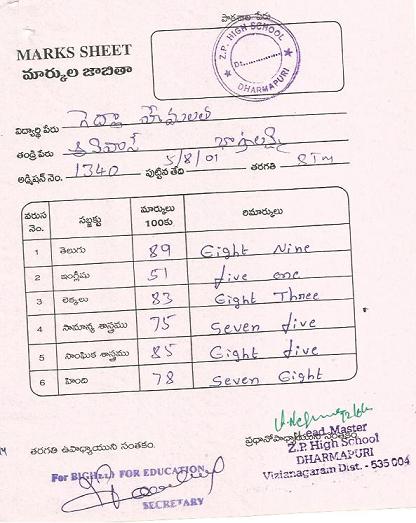 పాఠశాల పేరు
MARKS SHEET
మార్కుల జాబితా
Z.P. HIGH SCHOOL
Dt:
DHARMAPURI
విద్యార్థి పేరు
తండ్రి పేరు
అడ్మిషన్ నెం. 1340 పుట్టిన తేది 5/8/01 తరగతి 8Tm
వరుస నెం. సబ్జక్టు మార్కులు 100కు రిమార్కులు
1 తెలుగు 89 Eight Nine
2 ఇంగ్లీషు 51 five one
3 లెక్కలు 83 Eight Three
4 సామాన్య శాస్త్రము 75 Seven five
5 సాంఘిక శాస్త్రము 85 Eight five
6 హింది 78 Seven Eight
తరగతి ఉపాధ్యాయుని సంతకం. ప్రధానోపాధ్యాయుని సంతకం
Head Master
Z.P. High School
DHARMAPURI
Vizianagaram Dist. - 535 004
For BIGHELP FOR EDUCATION
SECRETARY